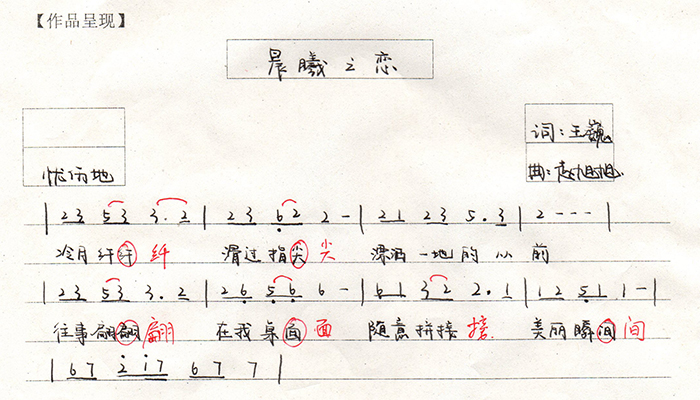 【作品呈现】
晨曦之恋
词:王巍
忧伤地
曲:赵旭旭
| 23 53 3.2 | 23 62 2 - | 21 23 5.3 | 2 - - - |
冷月纤纤 纤 滑过指尖 尖 漂洒一地的从前
| 23 53 3.2 | 26 56 6 - | 61 32 2.1 | 12 51 1 - |
往事翩翩 翩 在我桌面 面 随意拼接 接 美丽瞬间 间
| 67 217 67 7 |